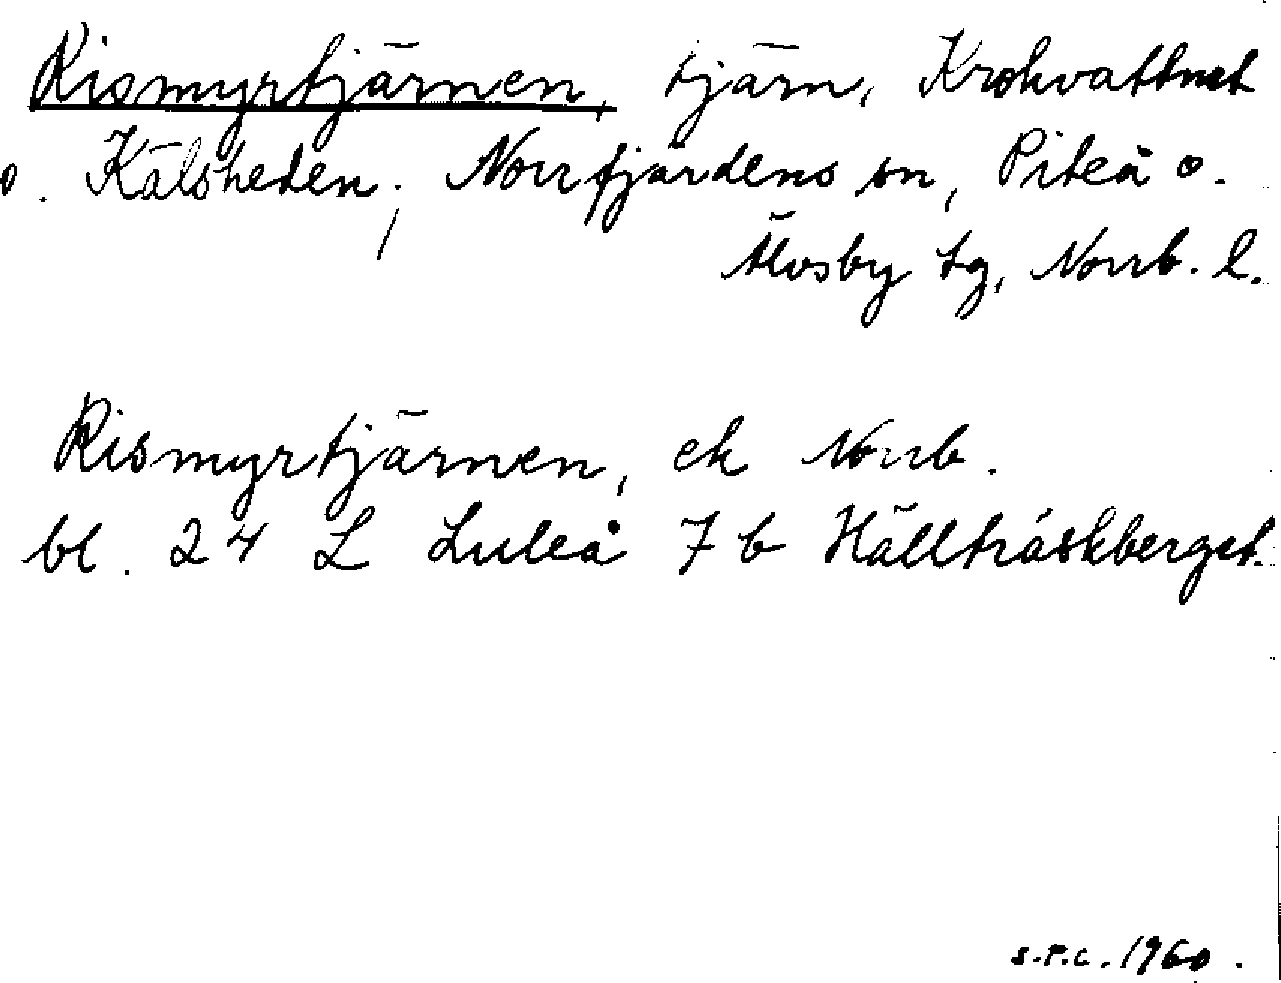 Rismyrtjärnen, tjärn, Krokvattnet
o. Kälsheden, Norrfjärdens sn, Piteå o.
Älvsby tg, Norrb. l.
Rismyrtjärnen, ek Norrb.
bl. 24 L Luleå 7 b Hällträskberget.
S.P.C. 1960.